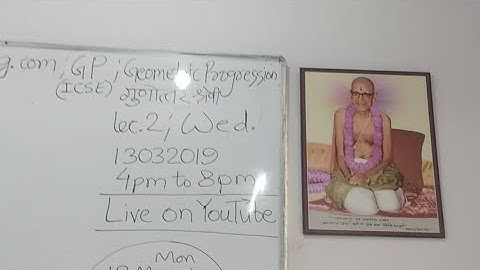 g.com; GP; Geometric Progression
(ICSE) गुणोत्तर श्रेणी
lec.2; Wed.
13032019
4pm to 8pm
Live on YouTube
Mon